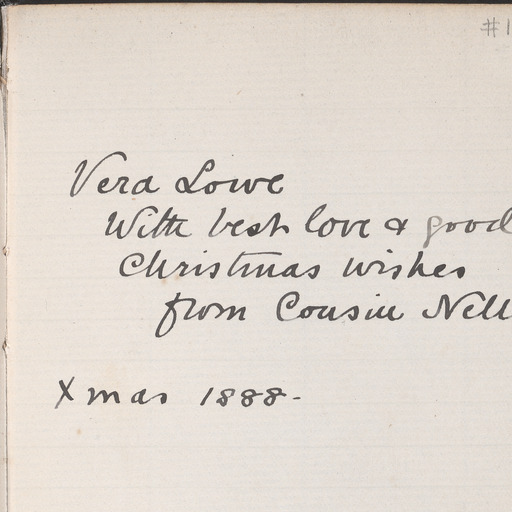 #1
Vera Lowe
With best love & good
Christmas wishes
from Cousin Nell
Xmas 1888-